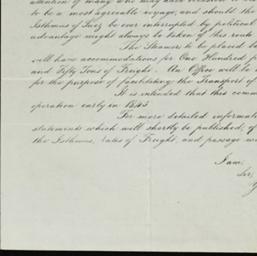 attention of many who may have occasion to
to be a most agreeable voyage, and should the
Isthmus of Suez be ever interrupted by political
advantage might always be taken of this route
The Steamers to be placed
will have accommodations for One Hundred
and Fifty Tons of Freight. An Office will be
for the purpose of facilitating the Transport of
It is intended that this comm
operation early in 1845
For more detailed informat
statements which will shortly be published, of
the Isthmus, rates of Freight, and passage
I am,
Sir,